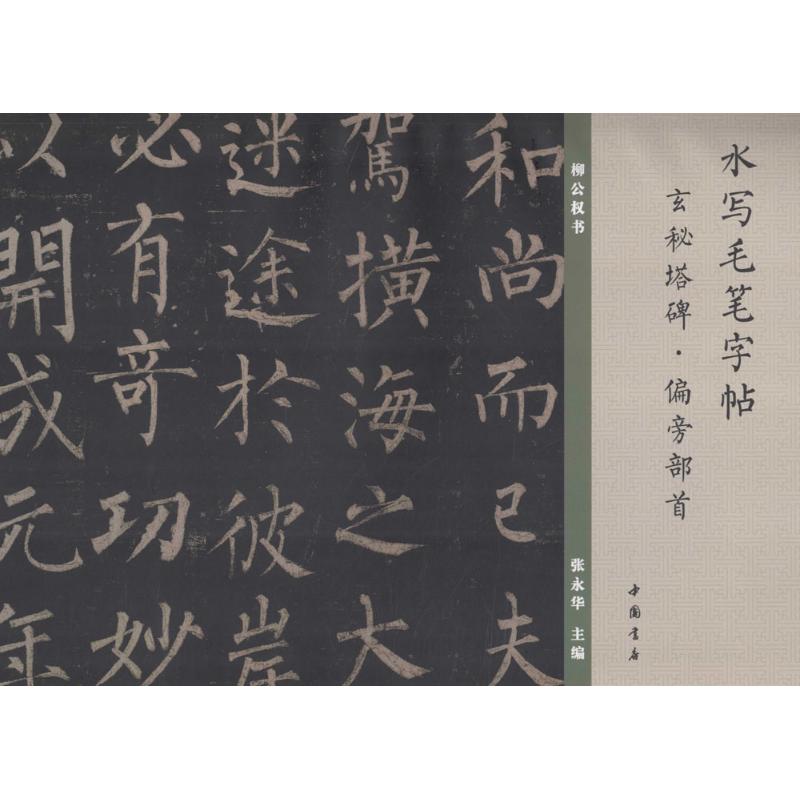 水写毛笔字帖
玄秘塔碑·偏旁部首
中国书店
柳公权书
张永华 主编
和尚而已夫
駕橫海之大
迷途於彼岸
必有奇功妙
以開成元年